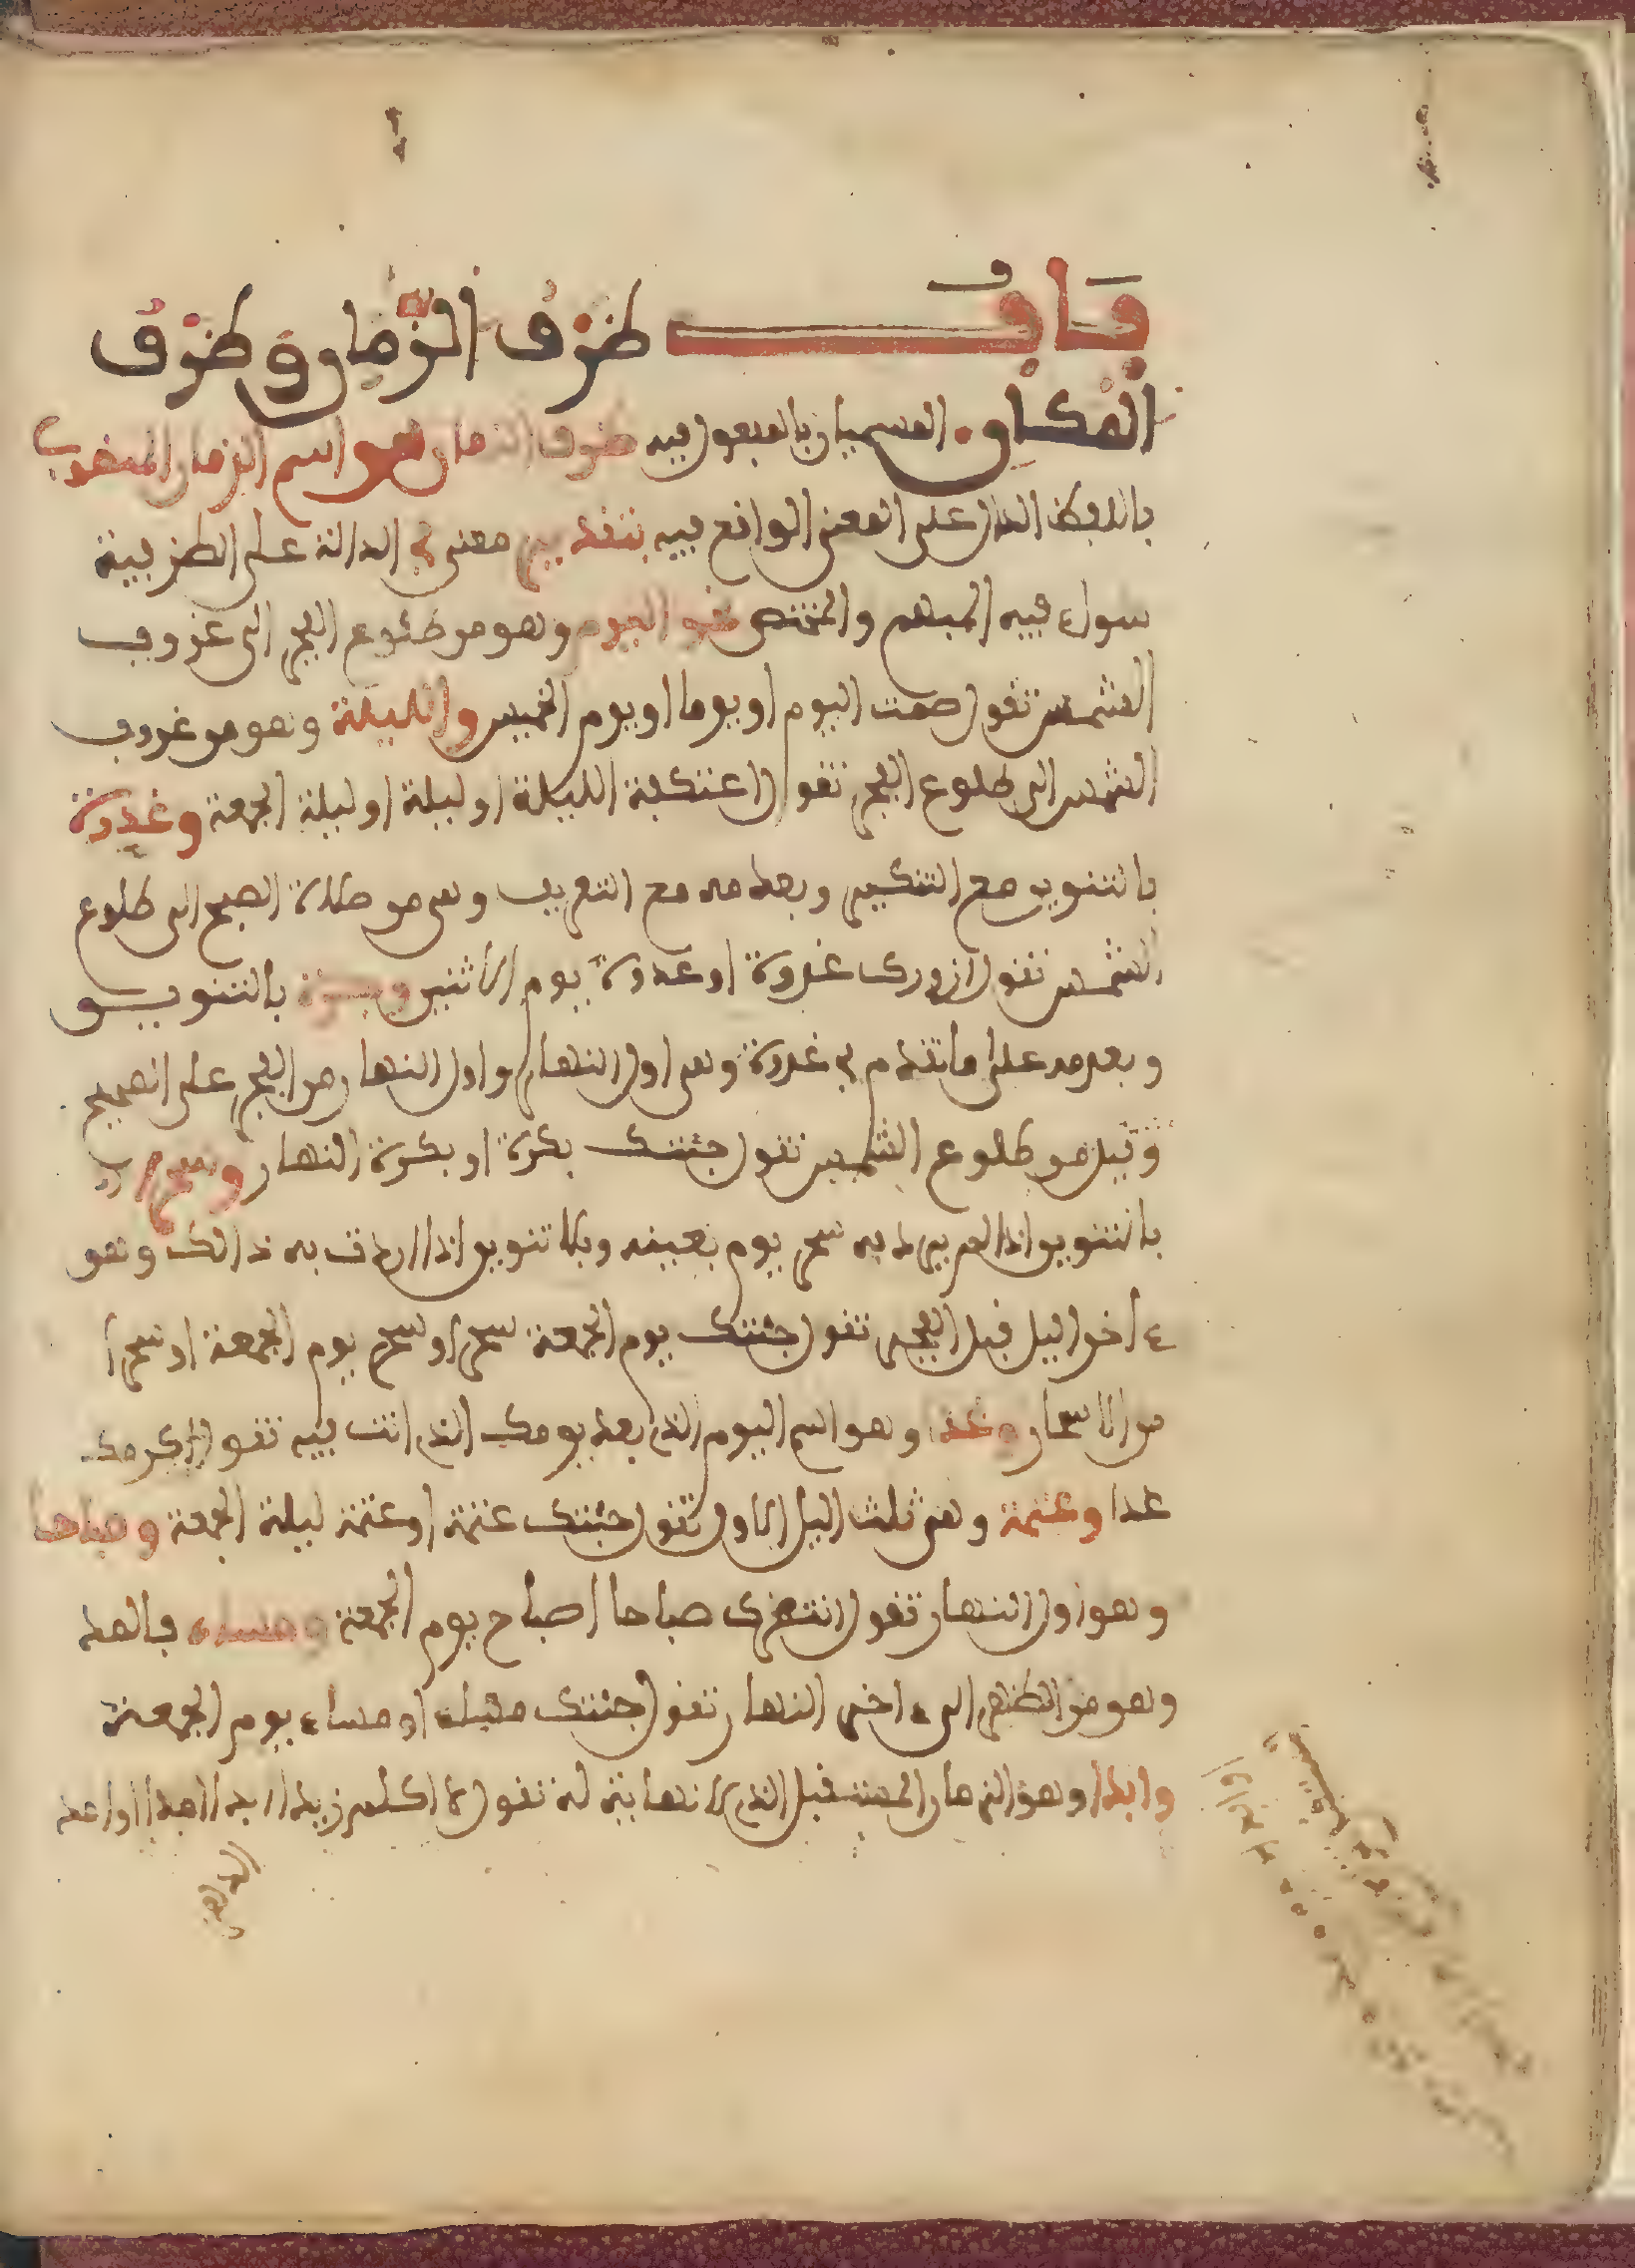 باب ظرف الزمان وظرف
المكان المسميان بالمفعول فيه ظرف الزمان هو اسم الزمان المنصوب
باللفظ الدال على المعنى الواقع فيه بتقدير معنى في الدالة على الظرفية
سواء فيه المبهم والمختص نحو اليوم وهو من طلوع الفجر الى غروب
الشمس تقول صمت اليوم او يوما او يوم الخميس والليلة وهو من غروب
الشمس الى طلوع الفجر تقول اعتكفة الليلة او ليلة او ليلة الجمعة وغدوة
بالتنوين مع التنكير وبعدمه مع التعريف وهي من صلاة الصبح الى طلوع
الشمس تقول ازورك غدوة او غدوة يوم الاثنين وبكرة بالتنوين
وبعدمه على ما تقدم في غدوة وهي اول النهار واول النهار من الفجر على الصحيح
وقيل من طلوع الشمس تقول جئتك بكرة او بكرة النهار وسحرا
بالتنوين اذا لم يرد به سحر يوم بعينه وبلا تنوين اذا اردت به ذالك وهو
ءاخر اليل قبل الفجر تقول جئتك يوم الجمعة سحر او سحر يوم الجمعة او سحرا
من الاسحار وغدا وهو اسم اليوم الذي بعد يومك الذي انت فيه تقول اكرمك
غدا وعتمة وهي ثلث اليل الاول تقول جئتك عتمة او عتمة ليلة الجمعة وصباحا
وهو اول النهار تقول انتظرك صباحا ا صباح يوم الجمعة ومساء بالمد
وهو من الظهر الى ءاخر النهار تقول جئتك مساء او مساء يوم الجمعة
وابدا وهو الزمان المستقبل الذي لا نهاية له تقول لا اكلم زيدا ابدا امدا او امد
الداهرين